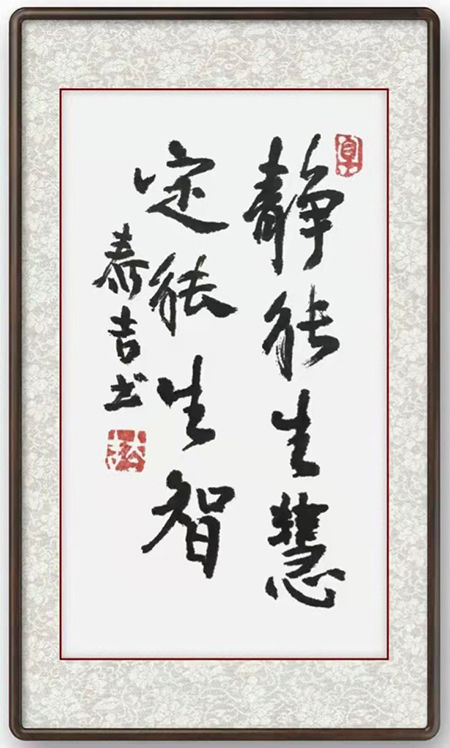 静能生慧
定能生智
寿吉书